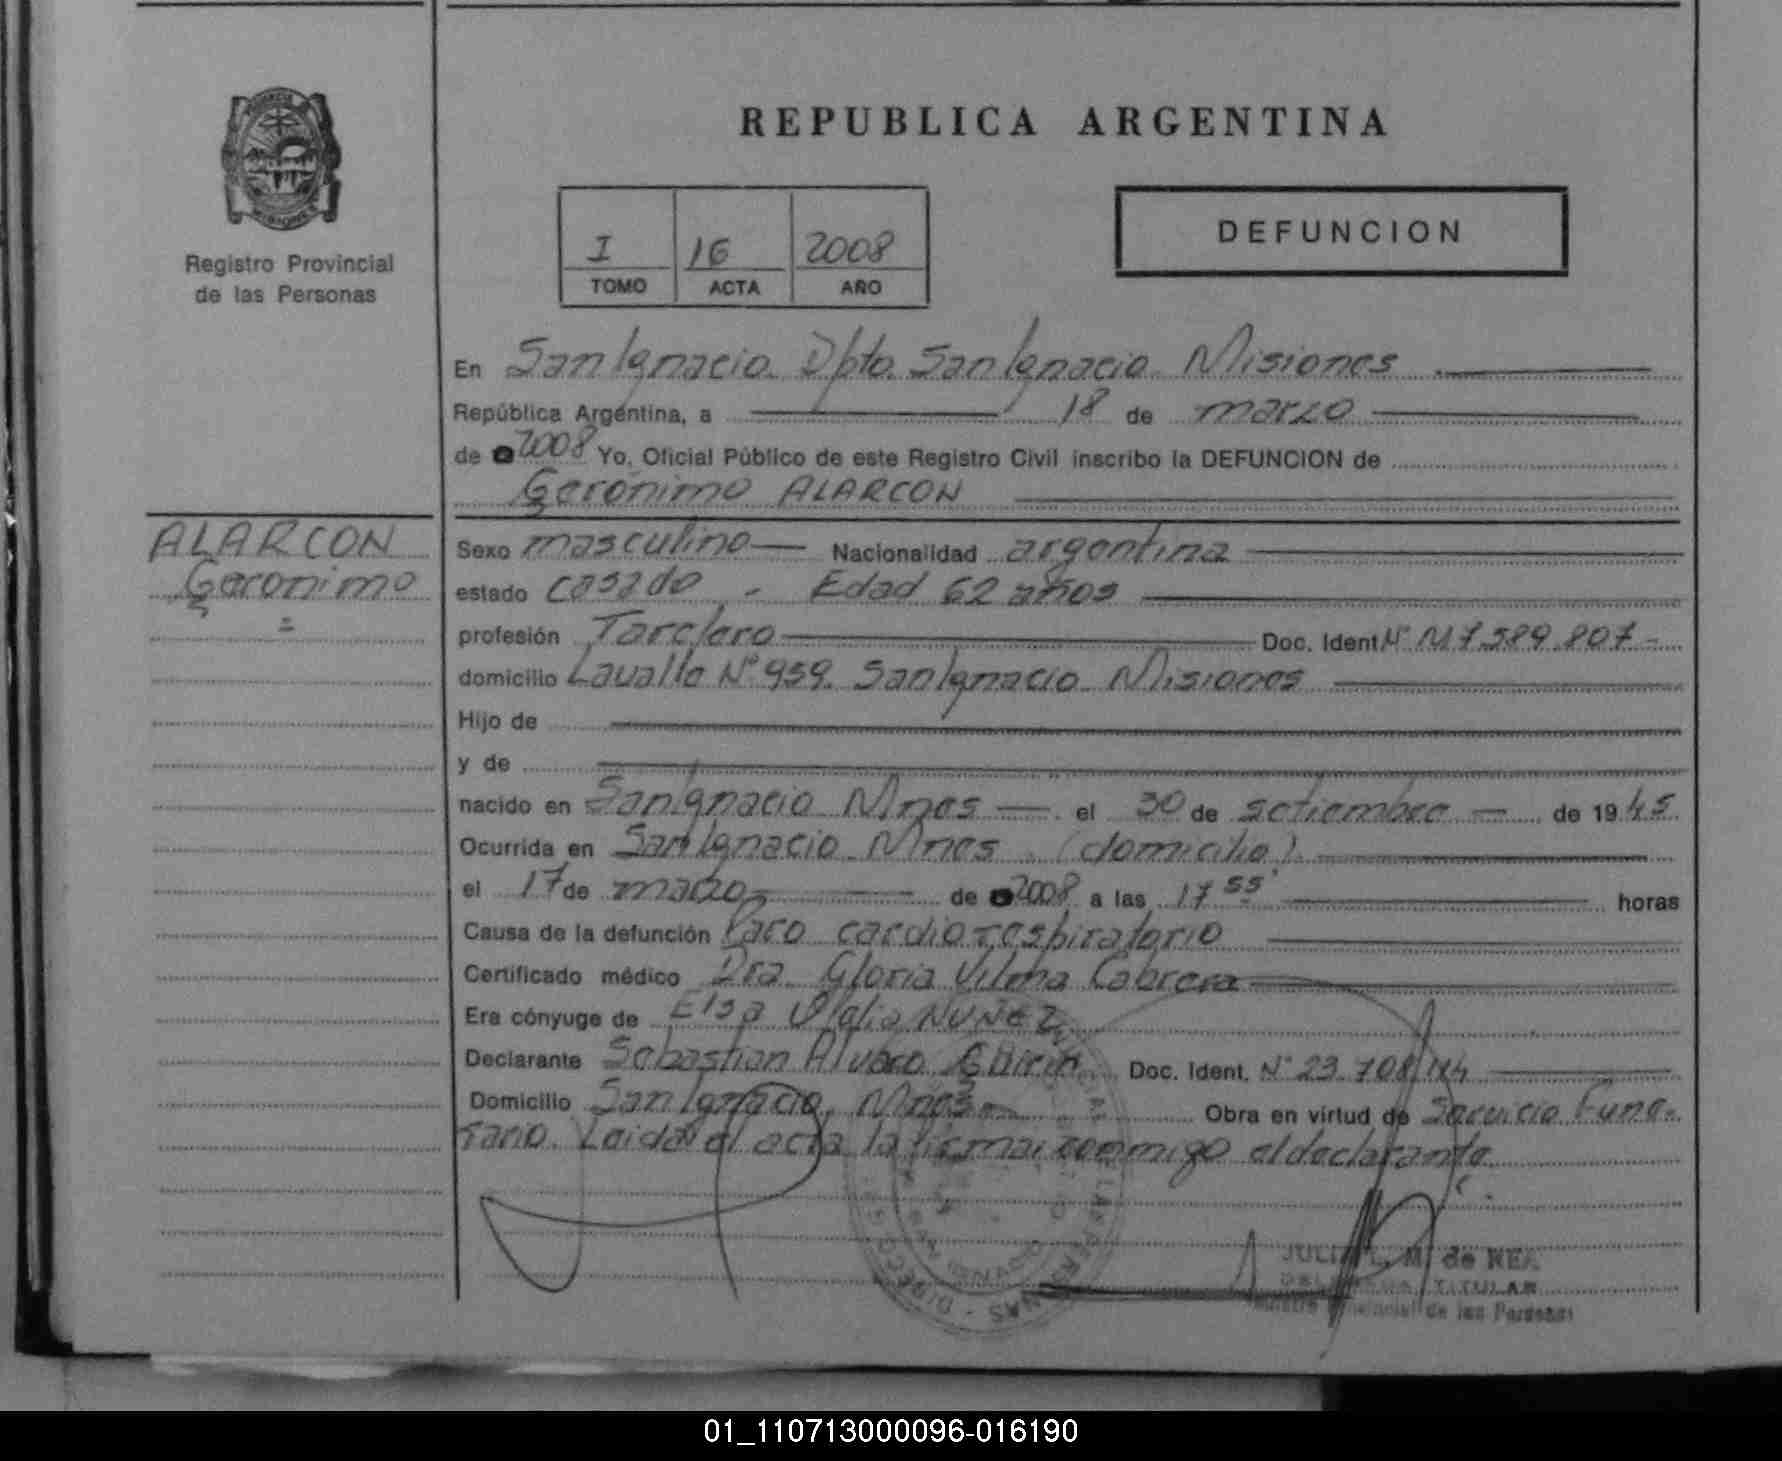 REPUBLICA ARGENTINA
PROVINCIA
MISIONES
Registro Provincial
de las Personas
I 16 2008
TOMO ACTA AÑO
DEFUNCION
En San Ignacio. Dpto. San Ignacio. Misiones
República Argentina, a 18 de marzo
de 2008 Yo, Oficial Público de este Registro Civil inscribo la DEFUNCION de
Gerónimo ALARCON
ALARCON
Geronimo
Sexo masculino Nacionalidad argentina
estado casado - Edad 62 años
profesión Tarefero Doc. Ident Nº M 7.589.807-
domicilio Lavalle Nº 959. San Ignacio. Misiones
Hijo de
y de
nacido en San Ignacio Mnes el 30 de setiembre de 1945
Ocurrida en San Ignacio Mnes. (domicilio).
el 17 de marzo de 2008 a las 17 55' horas
Causa de la defunción Paro cardio respiratorio
Certificado médico Dra. Gloria Vilma Cabrera
Era cónyuge de Elsa NUÑEZ
Declarante Sebastian Alvaro Doc. Ident. Nº 23.708
Domicilio San Ignacio, Mnes Obra en virtud de Servicio Fune-
rario. Leida el acta la firma conmigo el declarante.
SAN IGNACIO
LAS PERSONAS - DIRECC
JULIA L. M. de
TITULAR
Provincial de las Personas
01_110713000096-016190